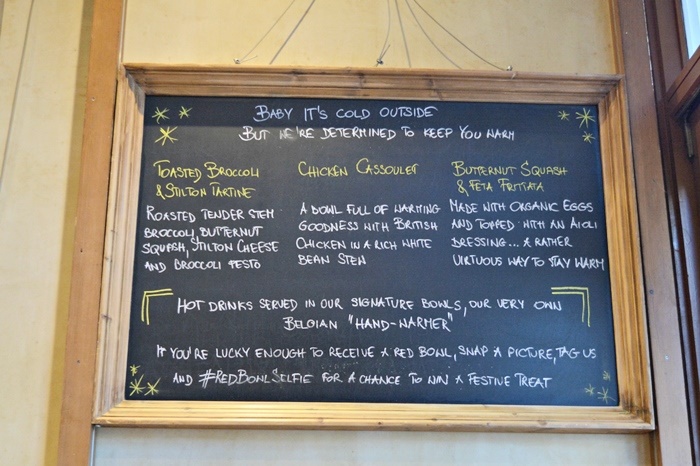 BABY IT'S COLD OUTSIDE
BUT WE'RE DETERMINED TO KEEP YOU WARM
TOASTED BROCCOLI
& STILTON TARTINE
ROASTED TENDER STEM
BROCCOLI, BUTTERNUT
SQUASH, STILTON CHEESE
AND BROCCOLI PESTO
CHICKEN CASSOULET
A BOWL FULL OF WARMING
GOODNESS WITH BRITISH
CHICKEN IN A RICH WHITE
BEAN STEW
BUTTERNUT SQUASH
& FETA FRITTATA
MADE WITH ORGANIC EGGS
AND TOPPED WITH AN AIOLI
DRESSING... A RATHER
VIRTUOUS WAY TO STAY WARM
HOT DRINKS SERVED IN OUR SIGNATURE BOWLS, OUR VERY OWN
BELGIAN "HAND-WARMER"
IF YOU'RE LUCKY ENOUGH TO RECEIVE A RED BOWL, SNAP A PICTURE, TAG US
AND #REDBOWLSELFIE FOR A CHANCE TO WIN A FESTIVE TREAT